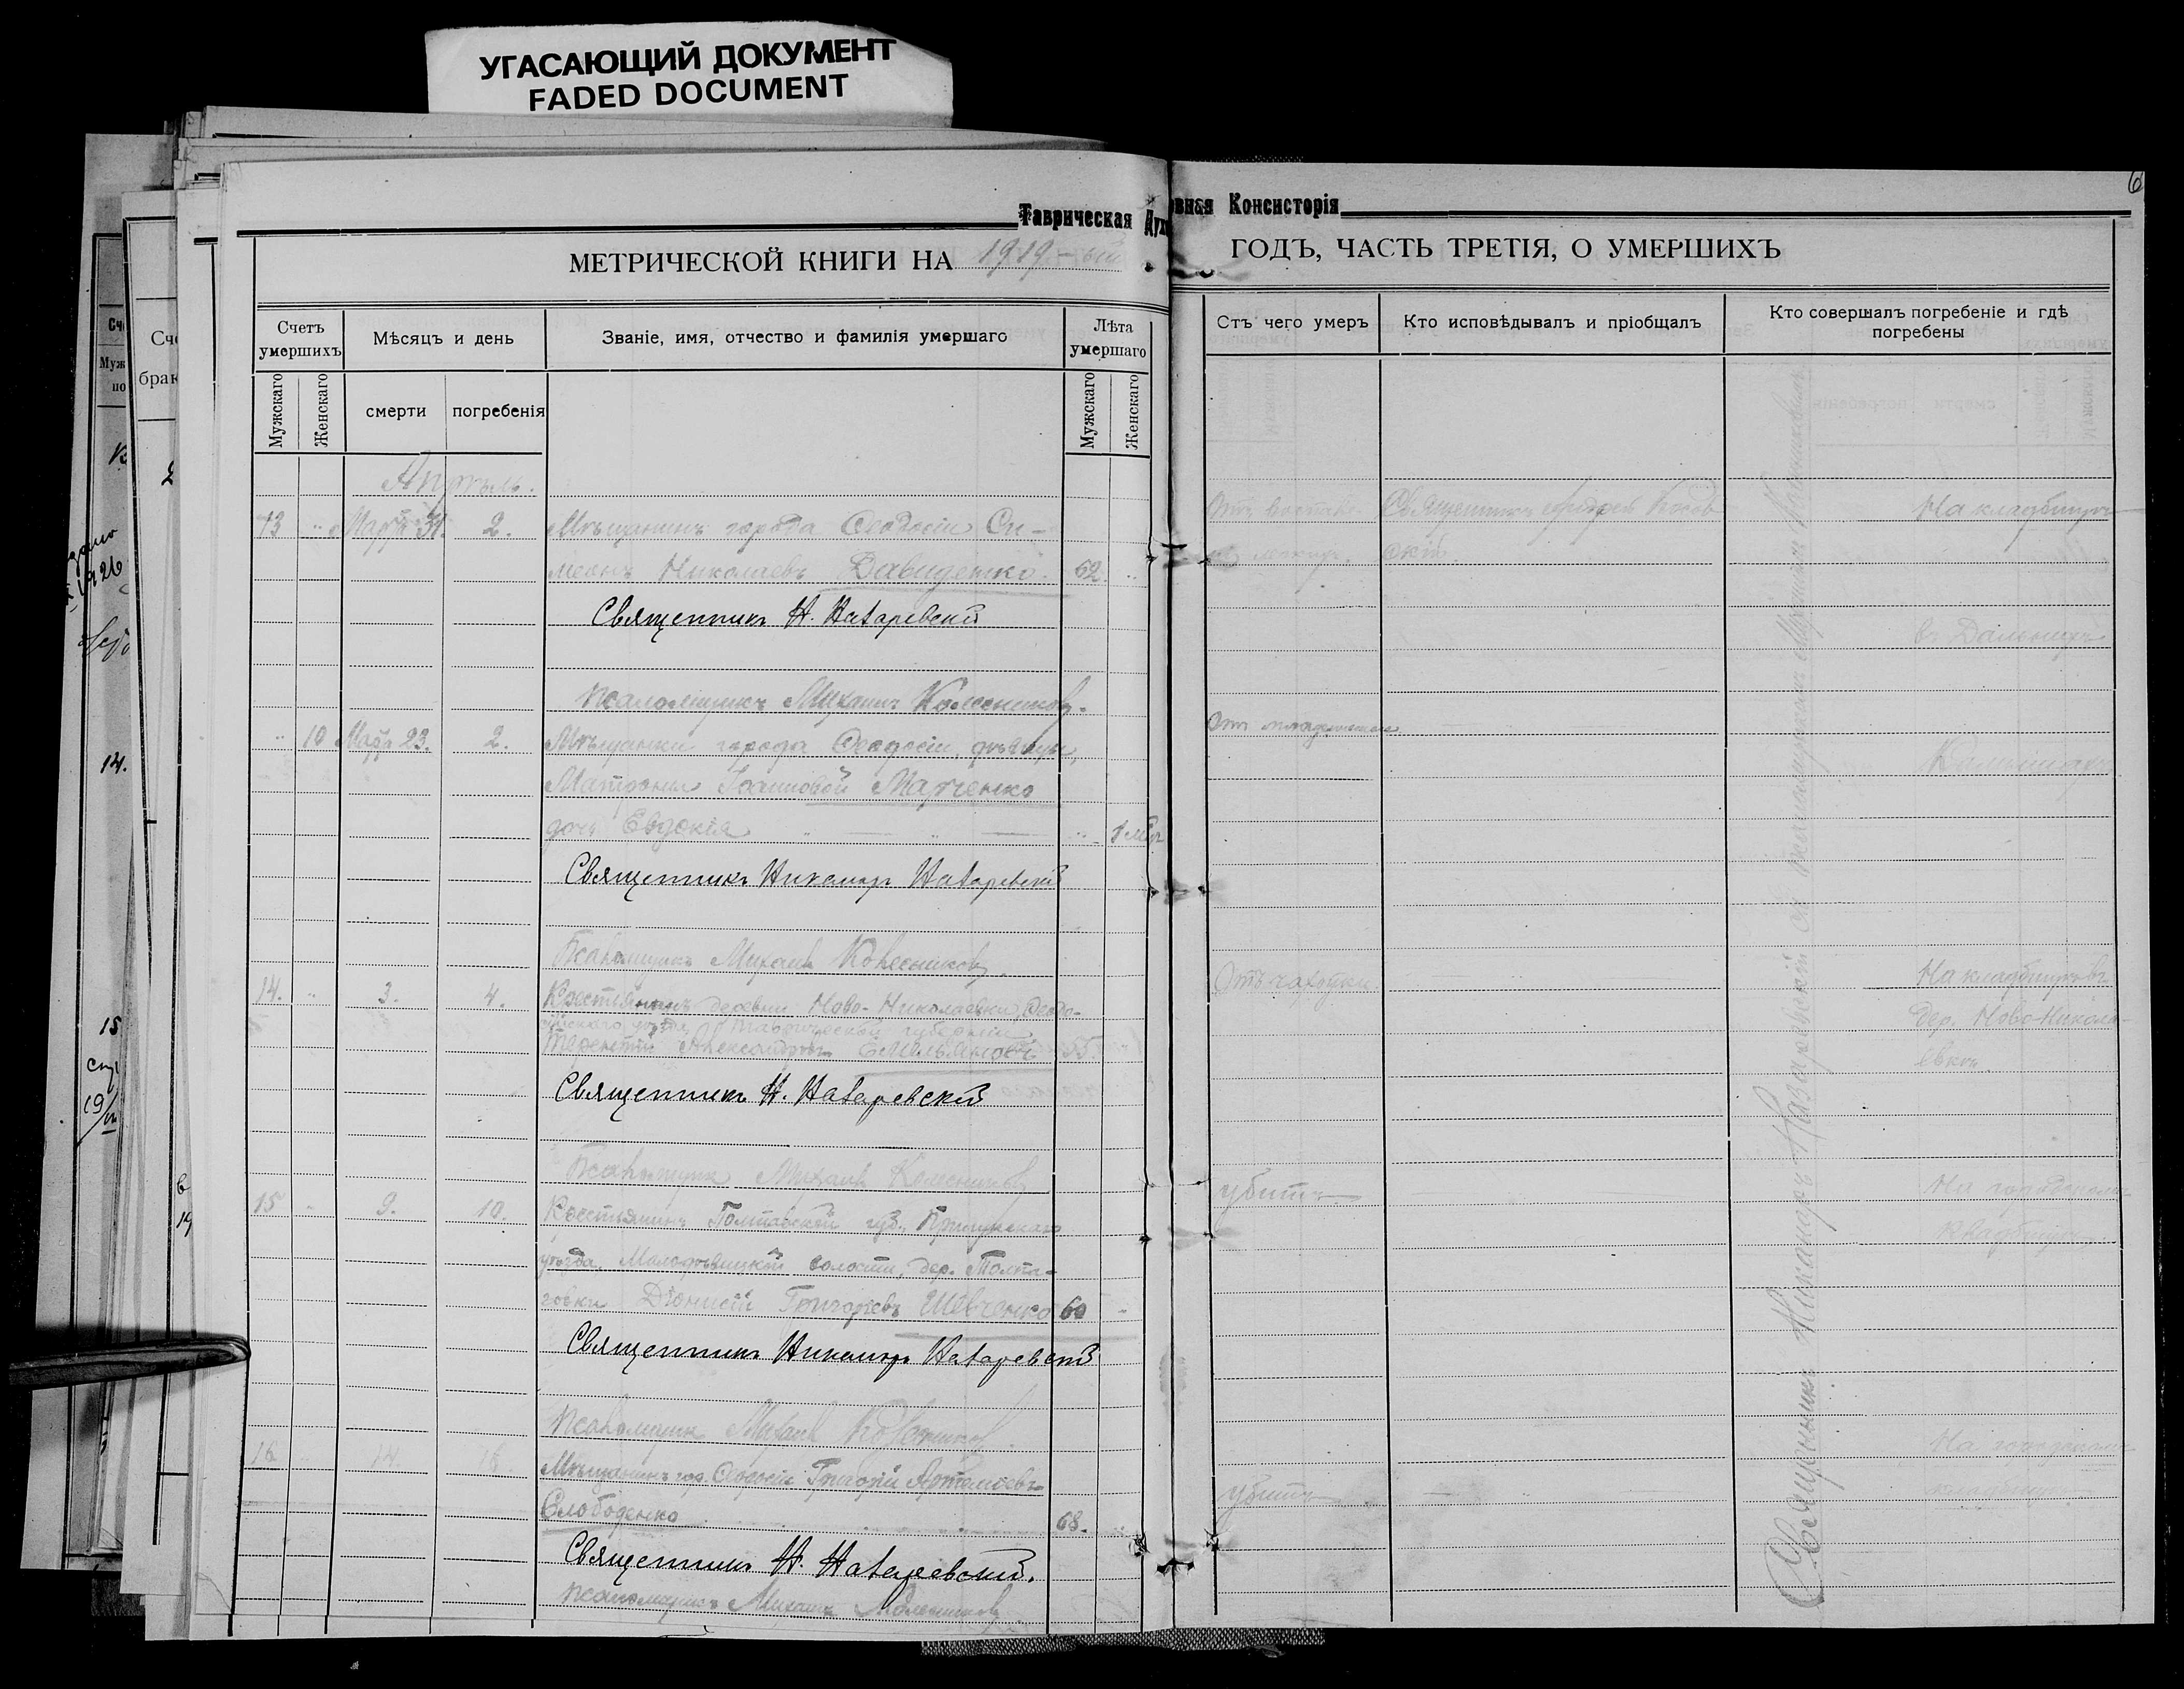 УГАСАЮЩИЙ ДОКУМЕНТ
FADED DOCUMENT
6
Таврическая Духовная Консисторія
МЕТРИЧЕСКОЙ КНИГИ НА 1919-ый ГОДЪ, ЧАСТЬ ТРЕТІЯ, О УМЕРШИХЪ
Счетъ умершихъ
Мѣсяцъ и день
Званіе, имя, отчество и фамилія умершаго
Лѣта умершаго
Мужскаго
Женскаго
смерти
погребенія
Мужскаго
Женскаго
Апрѣль.
13 " Марта 31. 2. Мѣщанинъ города Ѳеодосіи Си-
меонъ Николаевъ Давиденко. 62. "
Священникъ Н. Назаревскій
Псаломщикъ Михаилъ Колесниковъ.
" 10 Марта 23. 2. Мѣщанки города Ѳеодосіи, дѣвицы,
Матроны Іоанновой Марченко
дочь Евдокія " " " 1 мѣс
Священникъ Никаноръ Назаревскій
Псаломщикъ Михаилъ Колесниковъ.
14. " 3. 4. Крестьянинъ деревни Ново-Николаевки, Ѳеодо-
сійскаго уѣзда, Таврической губерніи
Терентій Александровъ Емельяновъ 55 "
Священникъ Н. Назаревскій
Псаломщикъ Михаилъ Колесниковъ
15 " 9. 10. Крестьянинъ Полтавской губ., Прилукскаго
уѣзда, Малодѣвицкой волости, дер.
Діонисій Григорьевъ Шевченко 60 -
Священникъ Никаноръ Назаревскій
Псаломщикъ Михаилъ Колесниковъ
16 14. 16 Мѣщанинъ гор. Ѳеодосіи Григорій Артемьевъ
Слободенко 68.
Священникъ Н. Назаревскій.
Псаломщикъ Михаилъ Колесниковъ
Отъ чего умеръ
Кто исповѣдывалъ и пріобщалъ
Кто совершалъ погребеніе и гдѣ погребены
Отъ Священникъ Андрей На кладбищѣ
скій
въ Дальнихъ
Отъ младенческой
Камышахъ
Отъ чахотки. На кладбищѣ въ
дер. Ново-Никола-
евкѣ.
убитъ На городскомъ
кладбищѣ.
убитъ На городскомъ
кладбищѣ
Священникъ Никаноръ Назаревскій съ псаломщикомъ Михаиломъ Колесниковымъ
14.
15
1926
19
14